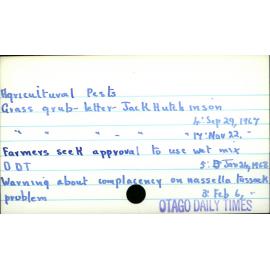 Agricultural Pests
Grass grub - letter - Jack Hutchinson
4: Sep 29, 1967
" " " - " " 17: Nov 22. -
Farmers seek approval to use wet mix
DDT 5: Jan 26, 1968
Warning about complacency on nassella tussock
problem 3: Feb 6, -
OTAGO DAILY TIMES